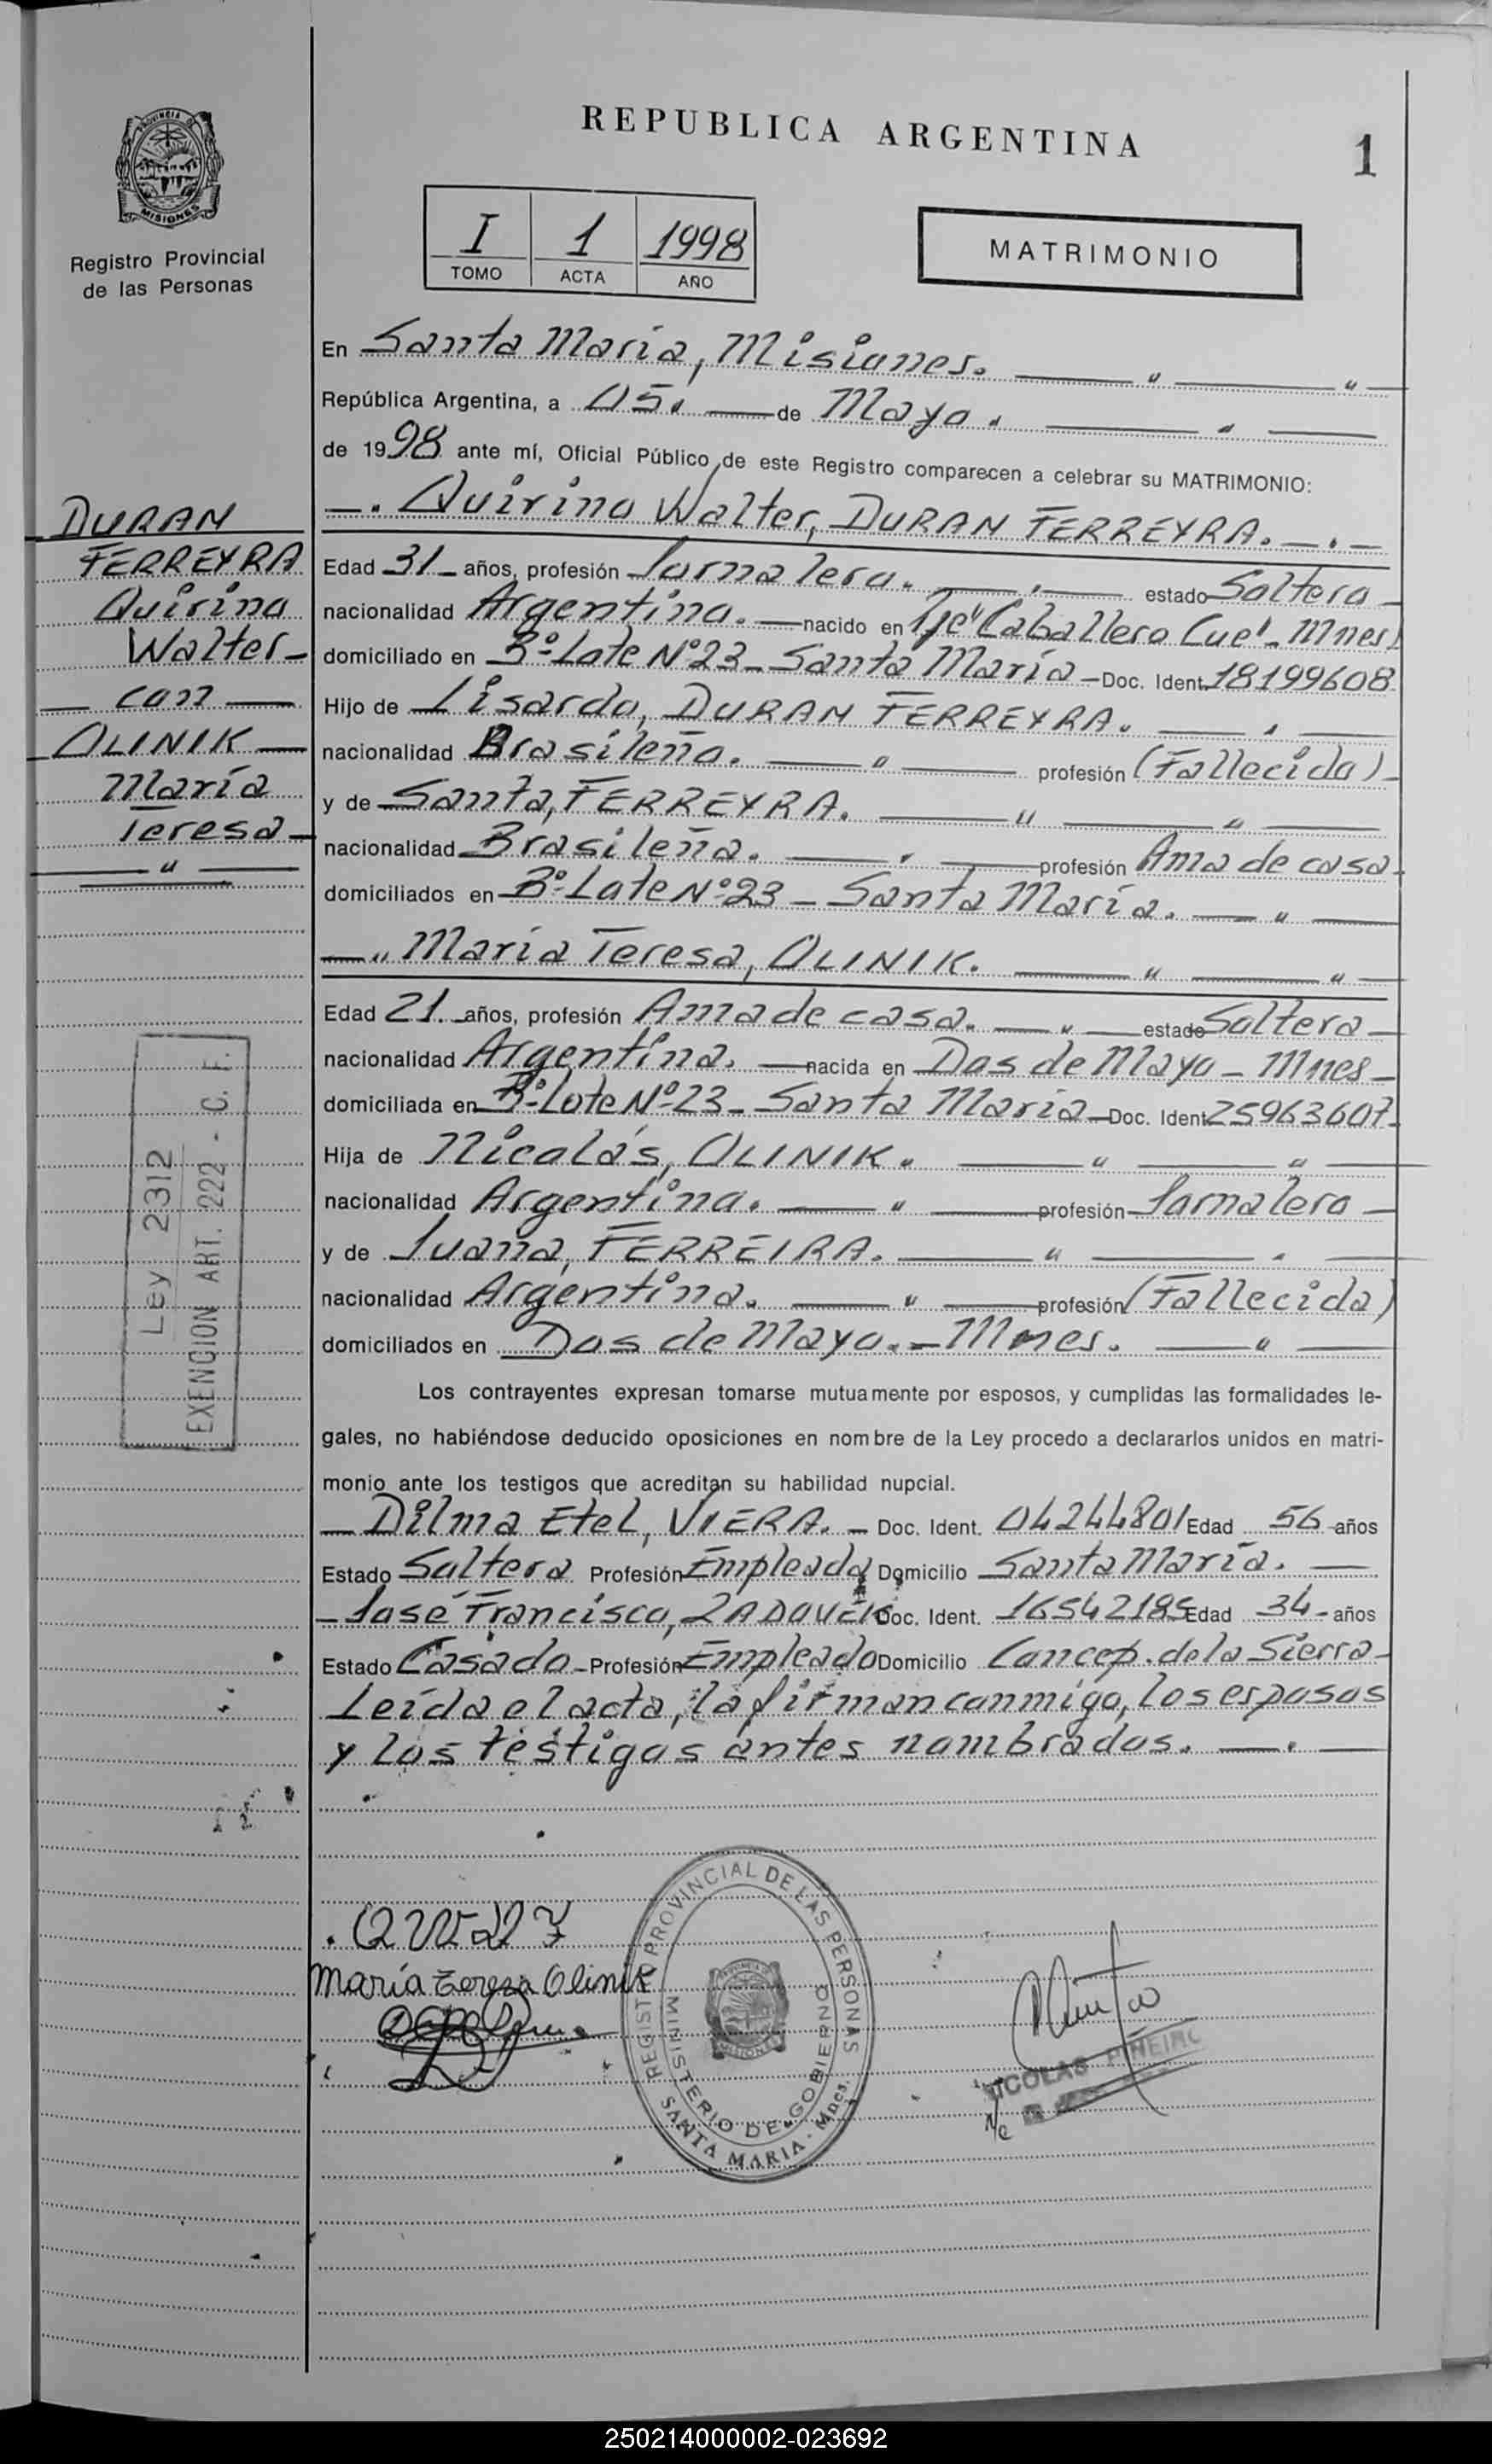 REPUBLICA ARGENTINA
1
PROVINCIA DE
MISIONES
Registro Provincial
de las Personas
I 1 1998
TOMO ACTA AÑO
MATRIMONIO
En Santa María, Misiones.
República Argentina, a 05. de Mayo.
de 1998 ante mí, Oficial Público de este Registro comparecen a celebrar su MATRIMONIO:
Quirino Walter, DURAN FERREYRA.
Edad 31 años, profesión Jornalero. estado Soltero
nacionalidad Argentina. nacido en Tte" Caballero Cue" - Mnes)
domiciliado en Bº Lote Nº 23 - Santa María - Doc. Ident. 18199608
Hijo de Lisardo, DURAN FERREYRA.
nacionalidad Brasileña. profesión (Fallecido)
y de Santa, FERREYRA.
nacionalidad Brasileña. profesión Ama de casa.
domiciliados en Bº Lote Nº 23 - Santa María.
María Teresa, OLINIK.
Edad 21. años, profesión Ama de casa. estado Soltera
nacionalidad Argentina. nacida en Dos de Mayo - Mnes
domiciliada en Bº Lote Nº 23 - Santa María - Doc. Ident. 25963607.
Hija de Nicolás, OLINIK.
nacionalidad Argentina. profesión Jornalero
y de Juana, FERREIRA.
nacionalidad Argentina. profesión (Fallecida)
domiciliados en Dos de Mayo. - Mnes.
Los contrayentes expresan tomarse mutuamente por esposos, y cumplidas las formalidades le-
gales, no habiéndose deducido oposiciones en nombre de la Ley procedo a declararlos unidos en matri-
monio ante los testigos que acreditan su habilidad nupcial.
Dilma Etel, VIERA. - Doc. Ident. 04244801 Edad 56 años
Estado Soltera Profesión Empleada Domicilio Santa María.
José Francisco, ZADOUEK, Doc. Ident. 16542185 Edad 34 - años
Estado Casado - Profesión Empleado Domicilio Concep. de la Sierra
Leída el acta, la firman conmigo, los esposos
y los testigos antes nombrados.
DURAN
FERREYRA
Quirino
Walter
con
OLINIK
María
Teresa
Ley 2312
EXENCION ART. 222 - C. F.
María Tereza Olinik
REGISTRO PROVINCIAL DE LAS PERSONAS
MINISTERIO DE GOBIERNO
SANTA MARIA - Mnes.
NICOLAS PIÑEIRO
250214000002-023692